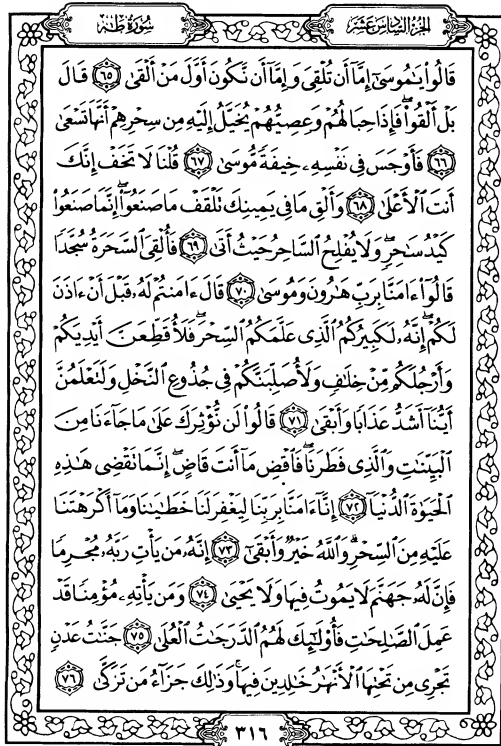 الجزء السادس عشر
سورة طه
قَالُوا۟ يَٰمُوسَىٰٓ إِمَّآ أَن تُلْقِىَ وَإِمَّآ أَن نَّكُونَ أَوَّلَ مَنْ أَلْقَىٰ ٦٥ قَالَ
بَلْ أَلْقُوا۟ ۖ فَإِذَا حِبَالُهُمْ وَعِصِيُّهُمْ يُخَيَّلُ إِلَيْهِ مِن سِحْرِهِمْ أَنَّهَا تَسْعَىٰ
٦٦ فَأَوْجَسَ فِى نَفْسِهِۦ خِيفَةً مُّوسَىٰ ٦٧ قُلْنَا لَا تَخَفْ إِنَّكَ
أَنتَ ٱلْأَعْلَىٰ ٦٨ وَأَلْقِ مَا فِى يَمِينِكَ تَلْقَفْ مَا صَنَعُوٓا۟ ۖ إِنَّمَا صَنَعُوا۟
كَيْدُ سَٰحِرٍ ۖ وَلَا يُفْلِحُ ٱلسَّاحِرُ حَيْثُ أَتَىٰ ٦٩ فَأُلْقِىَ ٱلسَّحَرَةُ سُجَّدًا
قَالُوٓا۟ ءَامَنَّا بِرَبِّ هَٰرُونَ وَمُوسَىٰ ٧٠ قَالَ ءَامَنتُمْ لَهُۥ قَبْلَ أَنْ ءَاذَنَ
لَكُمْ ۖ إِنَّهُۥ لَكَبِيرُكُمُ ٱلَّذِى عَلَّمَكُمُ ٱلسِّحْرَ ۖ فَلَأُقَطِّعَنَّ أَيْدِيَكُمْ
وَأَرْجُلَكُم مِّنْ خِلَٰفٍ وَلَأُصَلِّبَنَّكُمْ فِى جُذُوعِ ٱلنَّخْلِ وَلَتَعْلَمُنَّ
أَيُّنَآ أَشَدُّ عَذَابًا وَأَبْقَىٰ ٧١ قَالُوا۟ لَن نُّؤْثِرَكَ عَلَىٰ مَا جَآءَنَا مِنَ
ٱلْبَيِّنَٰتِ وَٱلَّذِى فَطَرَنَا ۖ فَٱقْضِ مَآ أَنتَ قَاضٍ ۖ إِنَّمَا تَقْضِى هَٰذِهِ
ٱلْحَيَوٰةَ ٱلدُّنْيَآ ٧٢ إِنَّآ ءَامَنَّا بِرَبِّنَا لِيَغْفِرَ لَنَا خَطَٰيَٰنَا وَمَآ أَكْرَهْتَنَا
عَلَيْهِ مِنَ ٱلسِّحْرِ ۗ وَٱللَّهُ خَيْرٌ وَأَبْقَىٰٓ ٧٣ إِنَّهُۥ مَن يَأْتِ رَبَّهُۥ مُجْرِمًا
فَإِنَّ لَهُۥ جَهَنَّمَ لَا يَمُوتُ فِيهَا وَلَا يَحْيَىٰ ٧٤ وَمَن يَأْتِهِۦ مُؤْمِنًا قَدْ
عَمِلَ ٱلصَّٰلِحَٰتِ فَأُو۟لَٰٓئِكَ لَهُمُ ٱلدَّرَجَٰتُ ٱلْعُلَىٰ ٧٥ جَنَّٰتُ عَدْنٍ
تَجْرِى مِن تَحْتِهَا ٱلْأَنْهَٰرُ خَٰلِدِينَ فِيهَا ۚ وَذَٰلِكَ جَزَآءُ مَن تَزَكَّىٰ ٧٦
٣١٦